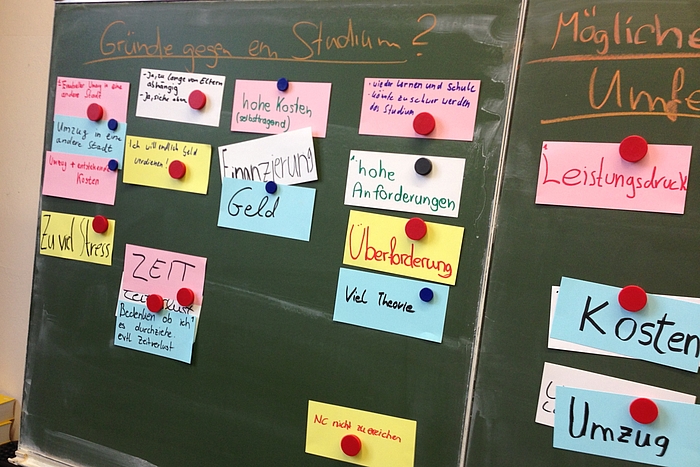 Gründe gegen ein Studium?
Umzug in eine
andere Stadt
Umzug + entstehende
Kosten
Zu viel Stress
- Ja, zu lange von Eltern
abhängig
- Ja, sicher aber
Ich will endlich Geld
verdienen!
ZEIT
Bedenken ob ich
es durchziehe.
evtl. Zeitverlust
hohe Kosten
(selbsttragend)
Finanzierung
Geld
- wieder lernen und Schule
- könnte zu schwer werden
das Studium
hohe
Anforderungen
Überforderung
Viel Theorie
NC nicht zu erreichen
Mögliche
Umf
Leistungsdruck
Kosten
Umzug